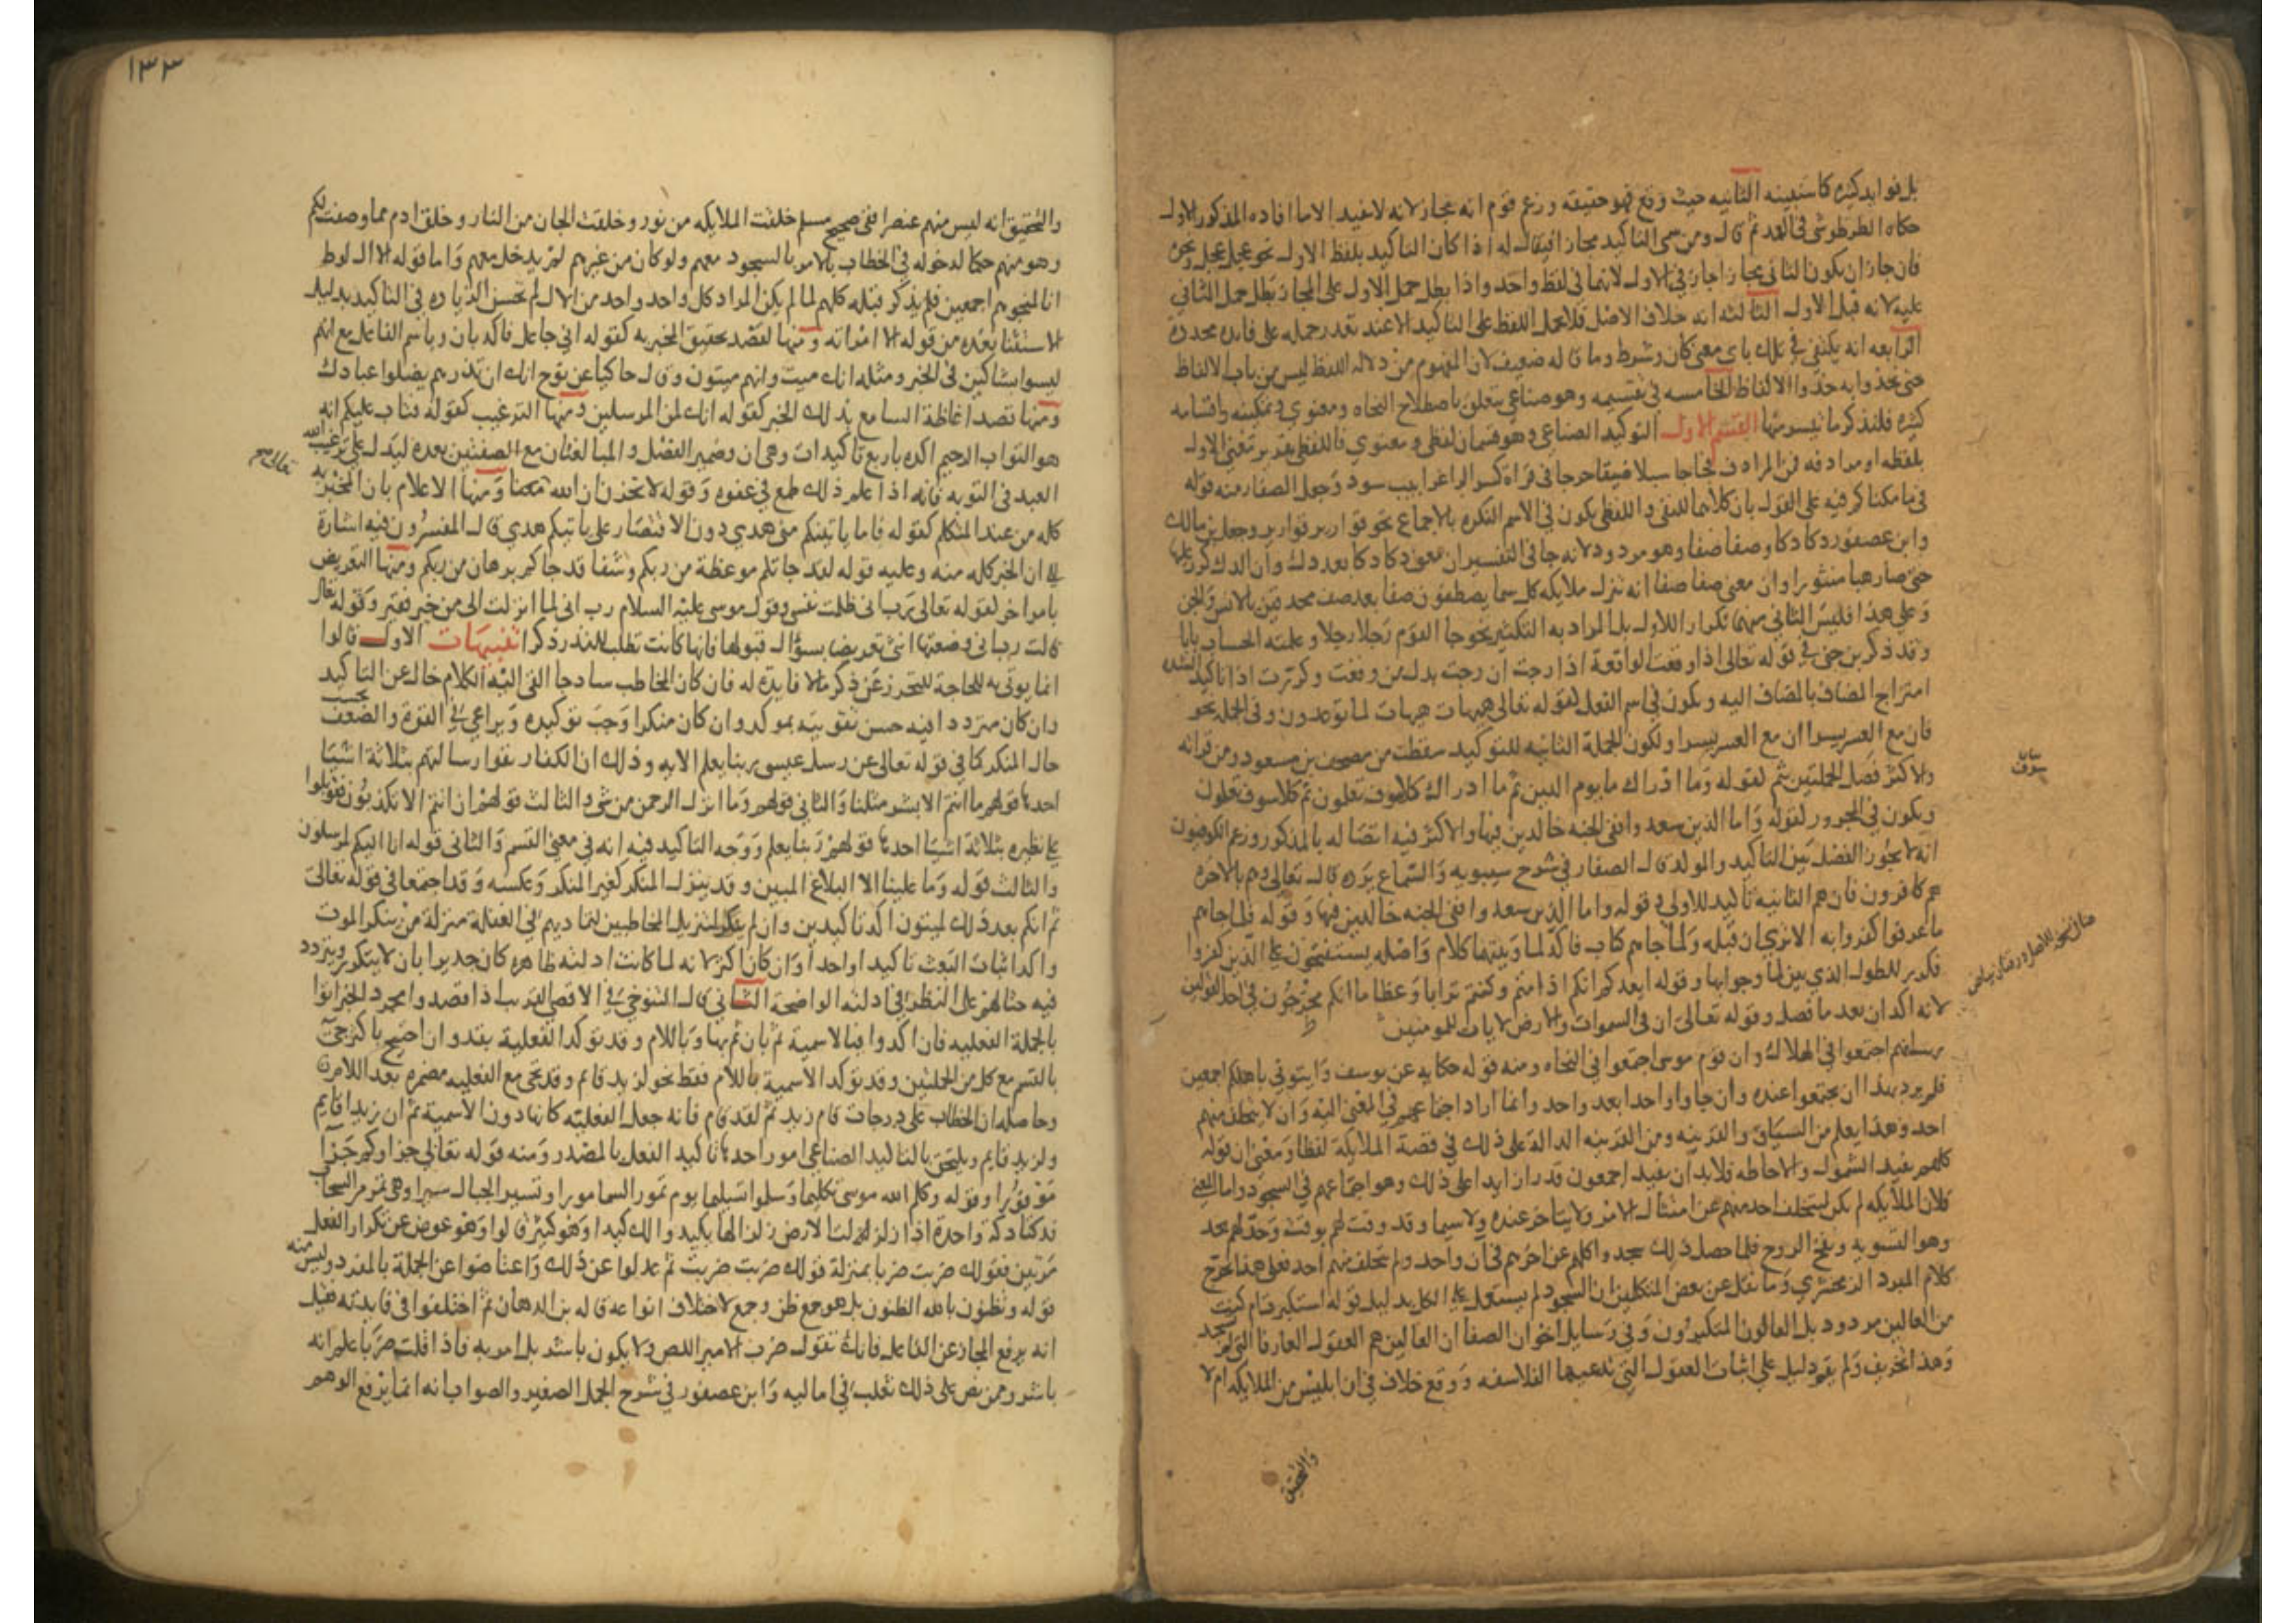 بل فوايد كثيره كما سنبينه الثانيه حيث وقع فهو حقيقه وزعم قوم انه مجاز لانه لا يفيد الا ما افاده المذكور الاول
حكاه الطرطوشي في العمد ثم قال ومن سمى التاكيد مجازا فيقال له اذا كان التاكيد بلفظ الاول نحو عجل عجل ونحوه
فان جاز ان يكون الثاني مجازا جاز في الاول لانهما في لفظ واحد واذا بطل حمل الاول على المجاز بطل حمل الثاني
عليه لانه قبل الاول الثالثه انه خلاف الاصل فلا يحمل اللفظ على التاكيد الا عند تعذر حمله على فايده محدده
الرابعه انه يكتفى في تلك باي معنى كان وشرط وما قاله ضعيف لان المفهوم من دلاله اللفظ ليس من باب الالفاظ
حتى يحذوا به حذو الالفاظ الخامسه في تقسيمه وهو صناعي يتعلق باصطلاح النحاه ومعنوي واقسامه
كثيره فلنذكر ما تيسر منها القسم الاول التوكيد الصناعي وهو قسمان لفظي ومعنوي فاللفظي تقرير معنى الاول
بلفظه او مرادفه فمن المرادف فجاجا سبلا ضيقا حرجا في قراة كسر الرا غرابيب سود وجعل الصفار منه قوله
فيما ان مكناكم فيه على القول بان كلاهما للنفي واللفظي يكون في الاسم النكره بالاجماع نحو قوارير قوارير وجعل بن مالك
وابن عصفور دكا دكا وصفا صفا وهو مردود لانه جا في التفسير ان معنى دكا دكا بعد دك وان الدك كرر عليها
حتى صار هبا منثورا وان معنى صفا صفا انه تنزل ملايكه كل سما يصطفون صفا بعد صف محدقين بالانس والجن
وعلى هذا فليس الثاني منهما تكرارا للاول بل المراد به التكثير نحو جا القوم رجلا رجلا وعلمته الحساب بابا بابا
وقد ذكر بن جني في قوله تعالى اذا وقعت الواقعة اذا رجت ان رجت بدل من وقعت وكررت اذا تاكيدا لشده
امتزاج المضاف بالمضاف اليه ويكون في اسم الفعل كقوله تعالى هيهات هيهات لما توعدون وفي الجمله نحو
فان مع العسر يسرا ان مع العسر يسرا ولكون الجملة الثانيه للتوكيد سقطت من مصحف بن مسعود ومن قراته
والاكثر فصل الجملتين بثم كقوله وما ادراك ما يوم الدين ثم ما ادراك كلا سوف تعلمون ثم كلا سوف تعلمون
ويكون في المجرور كقوله واما الذين سعدوا ففي الجنه خالدين فيها والاكثر فيه اتصاله بالمذكور وزعم الكوفيون
انه لا يجوز الفصل بين التاكيد والموكد قال الصفار في شرح سيبويه والسماع يرده قال تعالى وهم بالاخره
هم كافرون فان هم الثانيه تاكيد للاولى وقوله واما الذين سعدوا ففي الجنه خالدين فيها وقوله فلما جاهم
ما عرفوا كفروا به الا ترى ان قبله ولما جاهم كتاب فاكد لما وبينهما كلام واصله يستفتحون على الذين كفروا
فكرر للطول الذي بين لما وجوابها وقوله ايعدكم انكم اذا متم وكنتم ترابا وعظاما انكم مخرجون في احد القولين
لانه اكد ان بعد ما فصل وقوله تعالى ان في السموات والارض لايات للمومنين
اجتمعوا في الهلاك وان قوم موسى اجتمعوا في النجاه ومنه قوله حكايه عن يوسف وايتوني باهلكم اجمعين
فلم يرد بهذا ان يجتمعوا عنده وان جاوا واحدا بعد واحد وانما اراد اجتماعهم في المعنى اليه وان لا يتخلف منهم
احد وهذا يعلم من السياق والقرينه ومن القرينه الدالة على ذلك في قصة الملايكه لفظا ومعنى ان قوله
كلهم يفيد الشمول والاحاطه فلا بد ان يفيد اجمعون قدرا زايدا على ذلك وهو اجتماعهم في السجود واما المعنى
فلان الملايكه لم يكن ليتخلف احد منهم عن امتثال الامر ولا يتاخر عنده ولا سيما وقد وقت لهم بوقت وحد لهم بحد
وهو التسويه ونفخ الروح فلما حصل ذلك سجدوا كلهم عن اخرهم في ان واحد ولم يتخلف منهم احد فعلى هذا يخرج
كلام المبرد الزمخشري وما نقل عن بعض المتكلمين ان السجود لم يستعمل على الكل بدليل قوله استكبرت ام كنت
من العالين مردود بل العالون المتكبرون وفي رسايل اخوان الصفا ان العالين هم العقول العارفة التي لم تسجد
وهذا تحريف ولم يقم دليل على اثبات العقول التي تدعيها الفلاسفه ووقع خلاف في ان ابليس من الملايكه ام لا
والتحقيق
بياب
سوف
١٣٣
والتحقيق انه ليس منهم عنصرا ففي صحيح مسلم خلقت الملايكه من نور وخلقت الجان من النار وخلق ادم مما وصف لكم
وهو منهم حكما لدخوله في الخطاب بالامر بالسجود معهم ولو كان من غيرهم لم يدخل معهم واما قوله الا ال لوط
انا لمنجوهم اجمعين فلم يذكر قبله كلهم لما لم يكن المراد كل واحد واحد من الال لم يحسن الزياده في التاكيد بدليل
الاستثنا بعده من قوله الا امراته ومنها لقصد تحقيق المخبر به كقوله اني جاعل فاكد بان وباسم الفاعل مع انهم
ليسوا بشاكين في الخبر ومثله انك ميت وانهم ميتون وقال حاكيا عن نوح انك ان تذرهم يضلوا عبادك
ومنها قصد اغاظة السامع بذلك الخبر كقوله انك لمن المرسلين ومنها الترغيب كقوله فتاب عليكم انه
هو التواب الرحيم اكده باربع تاكيدات وهي ان وضمير الفصل والمبالغتان مع الصفتين بعده ليدل على ترغيب الله
تعالى
العبد في التوبه فانه اذا علم ذلك طمع في عفوه وقوله لا تحزن ان الله معنا ومنها الاعلام بان المخبر به
كله من عند المتكلم كقوله فاما ياتينكم مني هدى دون الاقتصار على ياتيكم هدى قال المفسرون فيه اشارة
الى ان الخير كله منه وعليه قوله لقد جاتكم موعظة من ربكم وشفا قد جاكم برهان من ربكم ومنها التعريض
بامر اخر كقوله تعالى رب اني ظلمت نفسي وقول موسى عليه السلام رب اني لما انزلت الي من خير فقير وقوله تعالى
قالت رب اني وضعتها انثى تعريضا بسؤال قبولها فانها كانت تطلب للنذر ذكرا تنبيهات الاول قالوا
انما يوتى به للحاجة للتحرز عن ذكر ما لا فايده له فان كان المخاطب ساذجا القى اليه الكلام خال عن التاكيد
وان كان مترددا فيه حسن تقويته بموكد وان كان منكرا وجب توكيده ويراعى في القوة والضعف بحسب
حال المنكر كما في قوله تعالى عن رسل عيسى ربنا يعلم الايه وذلك ان الكفار نفوا رسالتهم بثلاثة اشيا
احدها قولهم ما انتم الا بشر مثلنا والثاني قولهم وما انزل الرحمن من شي والثالث قولهم ان انتم الا تكذبون فقوبلوا
على نظيره بثلاثة اشيا احدها قولهم ربنا يعلم ووجه التاكيد فيه انه في معنى القسم والثاني قوله انا اليكم لمرسلون
والثالث قوله وما علينا الا البلاغ المبين وقد ينزل المنكر كغير المنكر وعكسه وقد اجتمعا في قوله تعالى
ثم انكم بعد ذلك لميتون اكد تاكيدين وان لم ينكر لتنزيل المخاطبين لتماديهم في الغفلة منزلة من ينكر الموت
واكد اثبات البعث تاكيدا واحدا وان كان اكثر لانه لما كانت ادلته ظاهره كان جديرا بان لا ينكر ويتردد
فيه حثا لهم على النظر في ادلته الواضحة الثاني قال التنوخي في الاقصى القريب اذا قصدوا مجرد الخبر اتوا
بالجملة الفعليه فان اكدوا فبالاسمية ثم بان ثم بها وباللام وقد توكد الفعلية بقد وان احتيج باكثر جي
بالقسم مع كل من الجملتين وقد توكد الاسمية باللام فقط نحو لزيد قايم وقد تجي مع الفعليه مضمره بعد اللام
وحاصله ان الخطاب على درجات قام زيد ثم لقد قام فانه جعل الفعليه كانها دون الاسمية ثم ان زيدا قايم
ولزيد قايم ويلتحق بالتاكيد الصناعي امور احدها تاكيد الفعل بالمصدر ومنه قوله تعالى جزاوكم جزا
موفورا وقوله وكلم الله موسى تكليما وسلموا تسليما يوم تمور السما مورا وتسير الجبال سيرا وهي تمر مر السحاب
فدكتا دكة واحدة اذا زلزلت الارض زلزالها يكيدو لك كيدا وهو كثير قالوا وهو عوض عن تكرار الفعل
مرتين فقولك ضربت ضربا بمنزلة قولك ضربت ضربت ثم عدلوا عن ذلك واعتاضوا عن الجملة بالمفرد وليس منه
قوله وتظنون بالله الظنون بل هو جمع ظن وجمع لاختلاف انواعه قاله بن الدهان ثم اختلفوا في فايدته فقيل
انه يرفع المجاز عن الفاعل فانك تقول ضرب الامير اللص ولا يكون باشر بل امر به فاذا قلت ضربا علم انه
باشر وممن نص على ذلك ثعلب في اماليه وابن عصفور في شرح الجمل الصغير والصواب انه انما يرفع الوهم